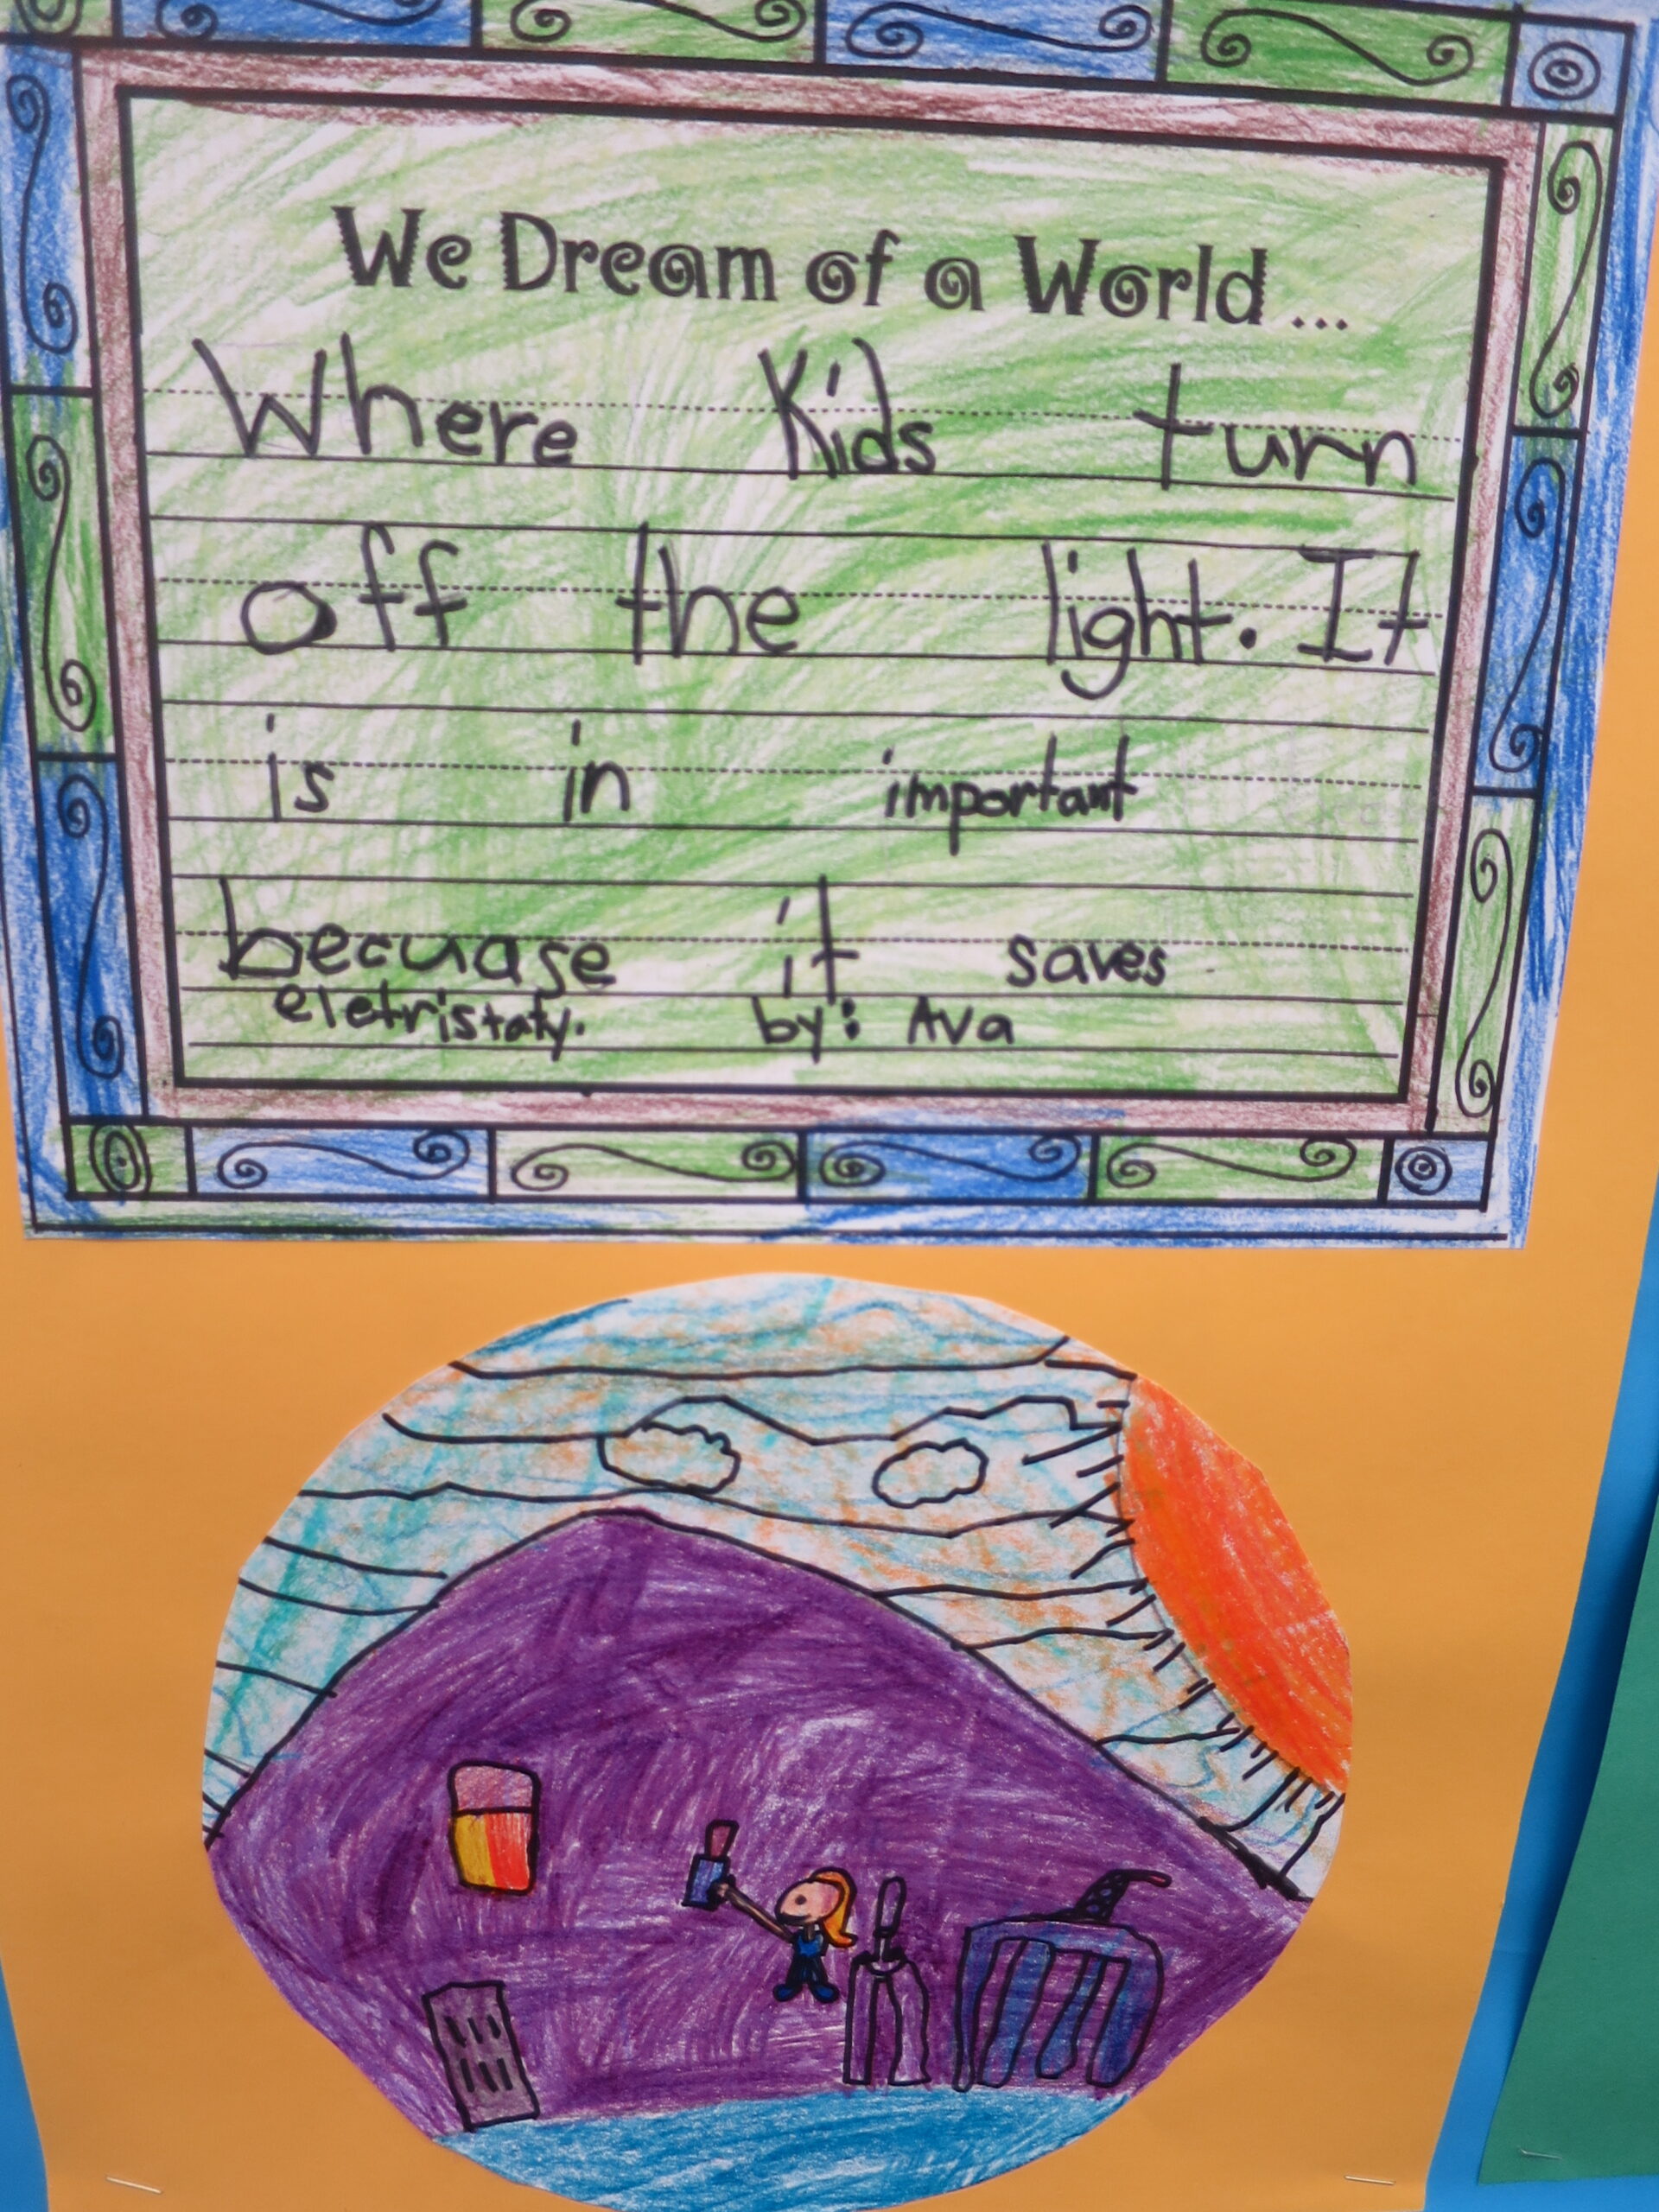 We Dream of a World ...
Where Kids turn
off the light. It
is in important
becuase it saves
eletristaty. by: Ava